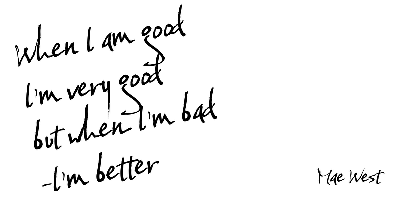 When I am good
I'm very good
but when I'm bad
-I'm better
Mae West